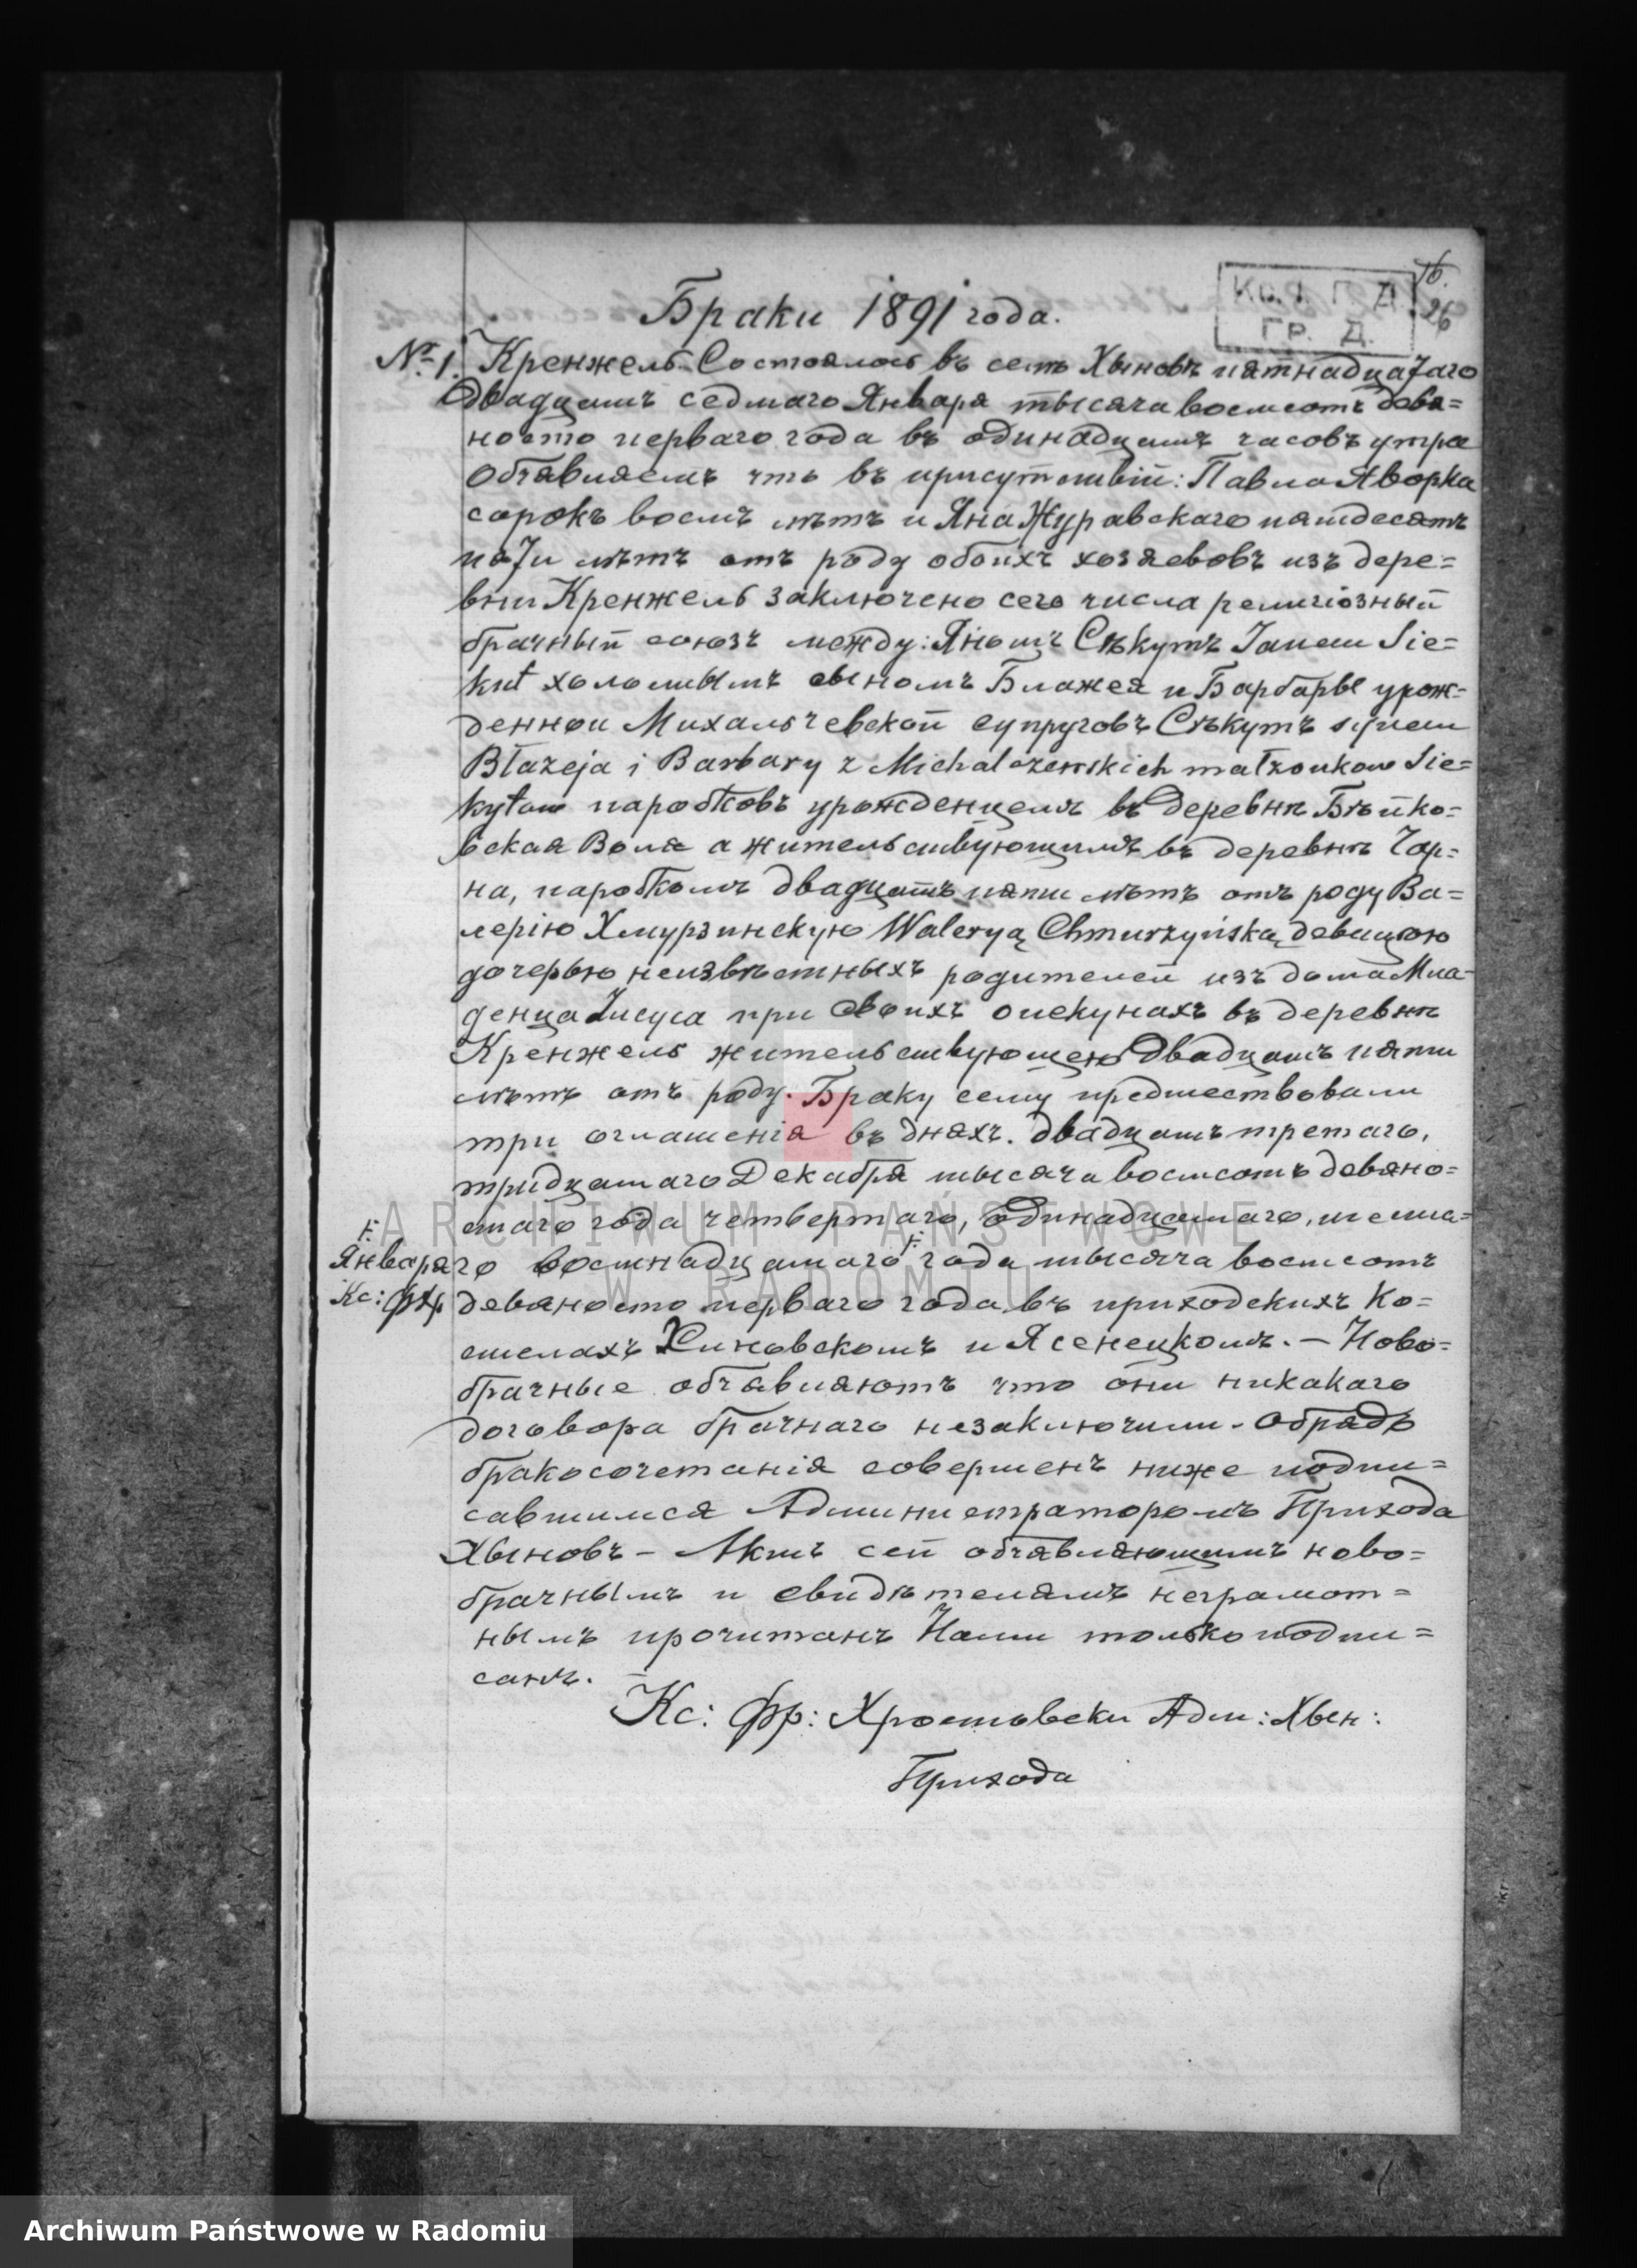 16.
26
Кн. I. Г. Д.
ГР. Д.
Браки 1891 года.
№ 1. Кренжель. Состоялось въ селѣ Хыновѣ пятнадцатаго
Двадцать седмаго Января тысяча восмсотъ девя=
носто перваго года въ одинадцать часовъ утра
Объявляемъ что въ присутствіи: Павла Яворка
сорокъ восмъ лѣтъ и Яна Журавскаго пятдесятъ
пяти лѣтъ отъ роду обоихъ хозяевовъ изъ дере=
вни Кренжель заключено сего числа религіозный
брачный союзъ между: Яномъ Сѣкутъ Janem Sie=
kut холостымъ сыномъ Блажея и Барбары урож=
денной Михальчевской супруговъ Сѣкутъ synem
Błażeja i Barbary z Michalczewskich małżonków Sie=
kutów паробковъ урожденцемъ въ деревнѣ Бѣйко=
вская Воля а жительствующимъ въ деревнѣ Чар=
на, паробкомъ двадцать пяти лѣтъ отъ роду Ва=
лерію Хмурзинскую Waleryą Chmurzyńską, девицою
дочерью неизвѣстныхъ родителей изъ дома Мла-
денца Іисуса при своихъ опекунахъ въ деревнѣ
Кренжель жительствующею Двадцать пяти
лѣтъ отъ роду. Браку сему предшествовали
три оглашенія въ дняхъ. двадцать третаго,
тридцатаго Декабря тысяча восмсотъ девяно=
стаго года четвертаго, Одинадцатаго,
го восмнадцатаго F. года тысяча восмсотъ
F.
Января
Кс: ФХр
девяносто перваго года въ приходскихъ Ко=
стелахъ Хиновскомъ и Ясенецкомъ. — Ново=
брачные объявляютъ что они никакаго
договора брачнаго незаключили - Обрядъ
бракосочетанія совершенъ ниже подпи=
савшимся Администраторомъ Прихода
Хыновъ - Актъ сей объявляющимъ ново=
брачнымъ и свидѣтелямъ неграмот=
нымъ прочитанъ Нами только подпи=
санъ.
Кс: Фр: Хростовски Адм: Хын:
Прихода
ARCHIWUM PAŃSTWOWE
W RADOMIU
Archiwum Państwowe w Radomiu